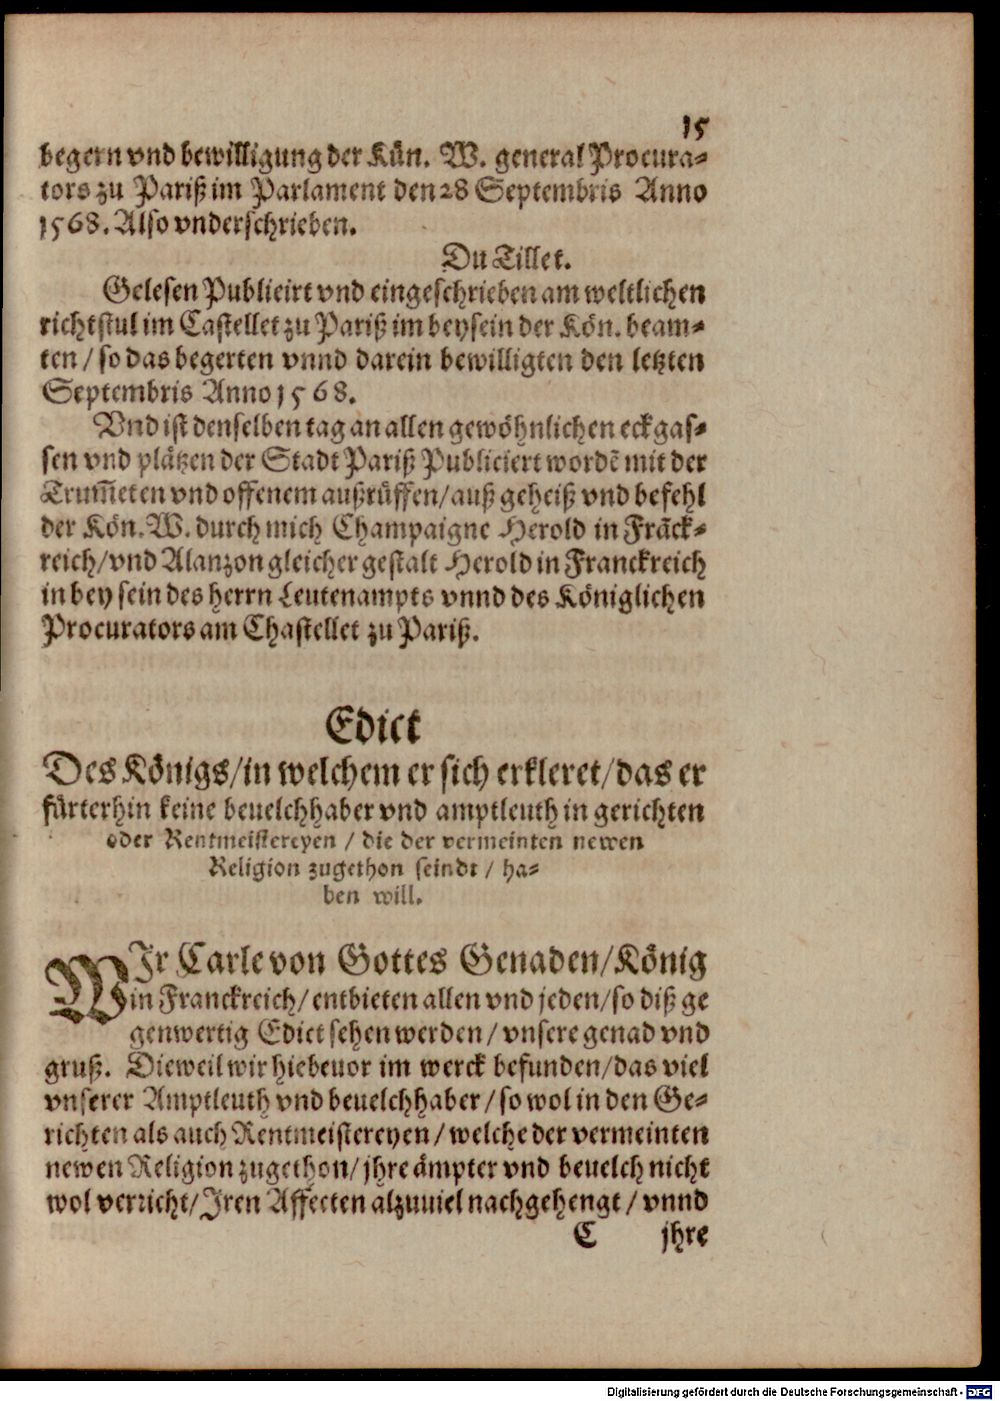 15
begern vnd bewilligung der Kün. W. general Procura-
tors zu Pariß im Parlament den 28 Septembris Anno
1568. Also vnderschrieben.
Du Tillet.
Gelesen Publicirt vnd eingeschrieben am weltlichen
richtstul im Castellet zu Pariß im beysein der Kön. beam-
ten / so das begerten vnnd darein bewilligten den letzten
Septembris Anno 1568.
Vnd ist denselben tag an allen gewöhnlichen eckgas-
sen vnd plätzen der Stadt Pariß Publiciert wordẽ mit der
Trum̃eten vnd offenem außrüffen/auß geheiß vnd befehl
der Kön. W. durch mich Champaigne Herold in Frãck-
reich/vnd Alanzon gleicher gestalt Herold in Franckreich
in bey sein des herrn Leutenampts vnnd des Königlichen
Procurators am Chastellet zu Pariß.
Edict
Des Königs/in welchem er sich erkleret/das er
fürterhin keine beuelchhaber vnd amptleuth in gerichten
oder Rentmeistereyen / die der vermeinten newen
Religion zugethon seindt / ha-
ben will.
WIr Carle von Gottes Genaden/König
in Franckreich/entbieten allen vnd jeden/so diß ge
genwertig Edict sehen werden/vnsere genad vnd
gruß. Dieweil wir hiebeuor im werck befunden/das viel
vnserer Amptleuth vnd beuelchhaber/so wol in den Ge-
richten als auch Rentmeistereyen/welche der vermeinten
newen Religion zugethon/jhre ämpter vnd beuelch nicht
wol verricht/Iren Affecten alzuuiel nachgehengt/vnnd
C jhre
Digitalisierung gefördert durch die Deutsche Forschungsgemeinschaft - DFG